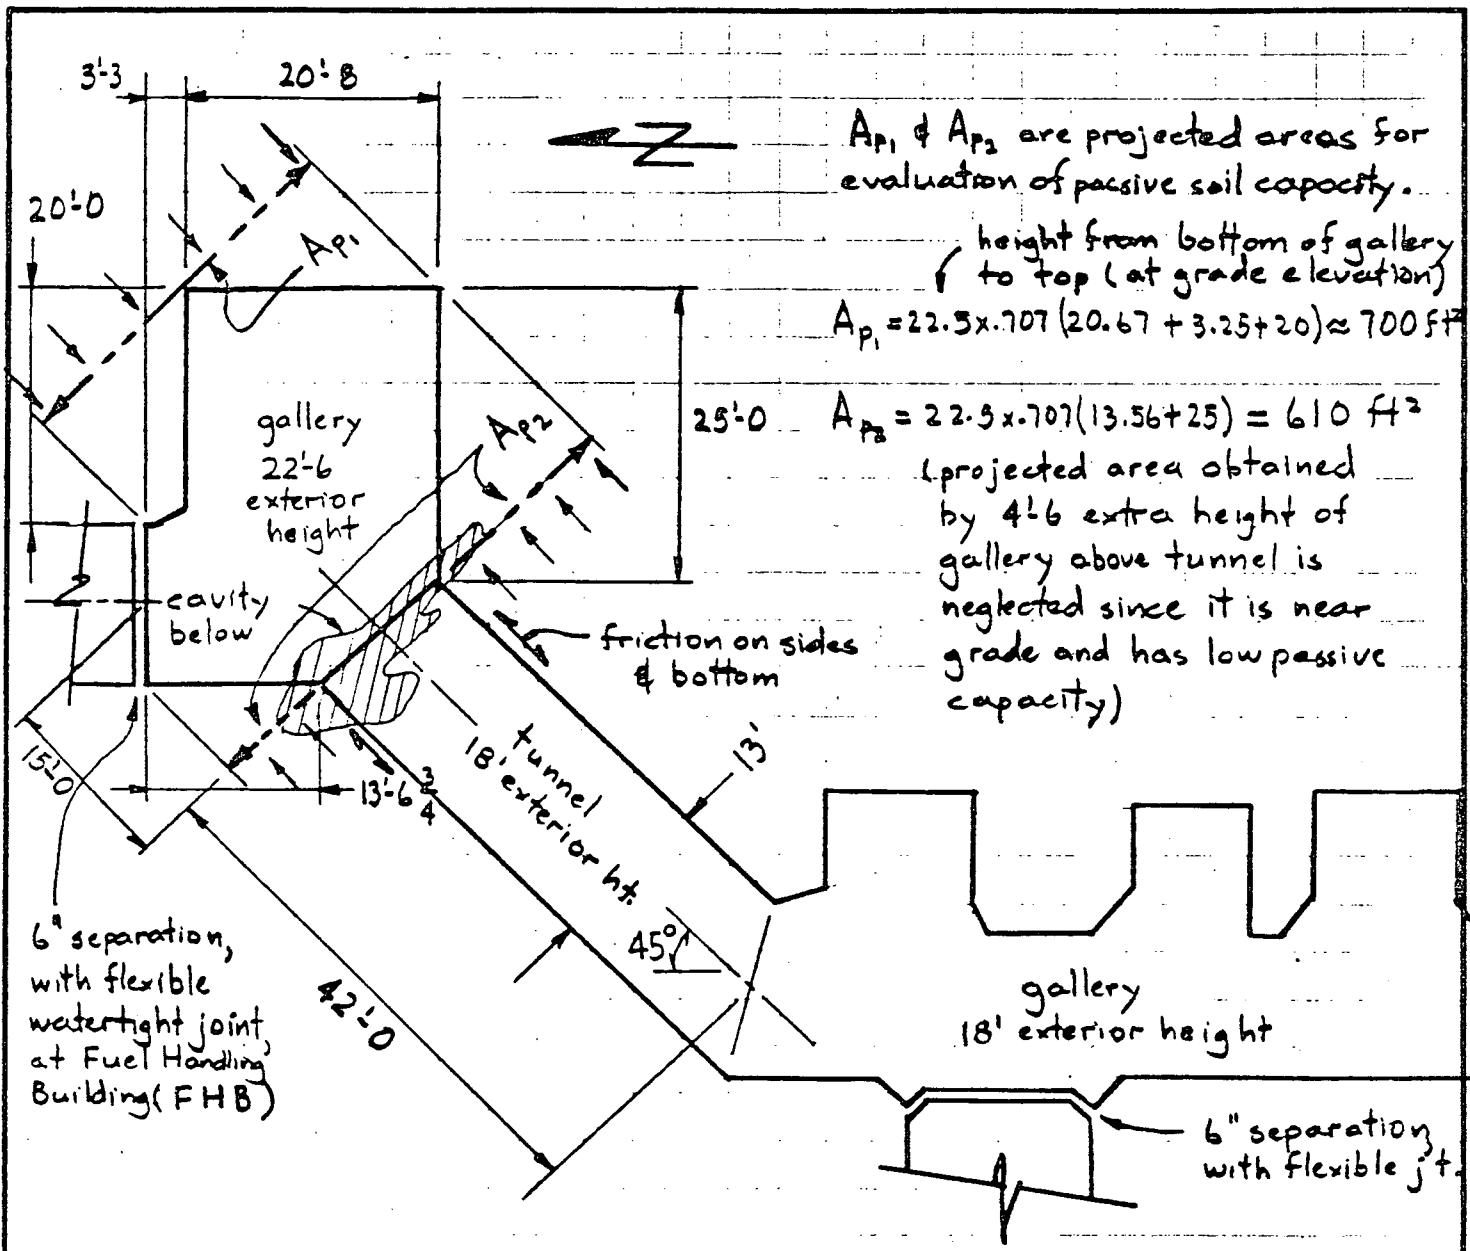 3'-3
20'-8
N
20'-0
Ap₁
Ap₁ & Ap₂ are projected areas for
evaluation of passive soil capacity.
height from bottom of gallery
to top (at grade elevation)
Ap₁ = 22.5x.707(20.67 + 3.25+20) ≈ 700 ft²
Ap₂ = 22.5x.707(13.56+25) = 610 ft²
(projected area obtained
by 4'-6 extra height of
gallery above tunnel is
neglected since it is near
grade and has low passive
capacity)
gallery
22'-6
exterior
height
Ap2
25'-0
cavity
below
friction on sides
& bottom
15'-0
13'-6 3/4
tunnel
18' exterior ht.
13'
45°
42'-0
6" separation,
with flexible
watertight joint,
at Fuel Handling
Building (FHB)
gallery
18' exterior height
6" separation,
with flexible jt.